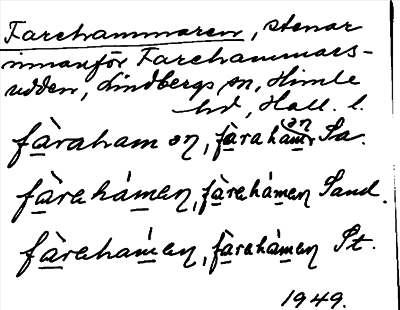 Farehammaren, stenar
innanför Farehammars-
udden, Lindbergs sn, Himle
hd, Hall. l.
fàraham ən, fàrahamən Sa.
fàrahámen, fàrahámen Sand.
fàrahamen, fàrahamen St.
1949.